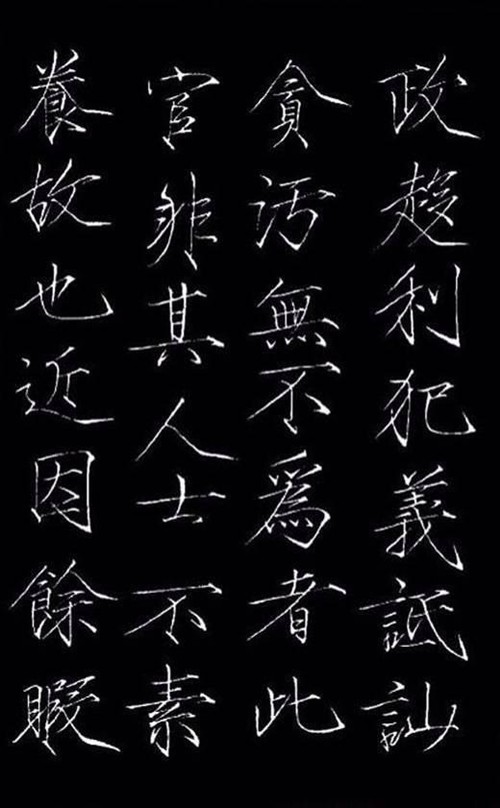 政趍利犯義詆訕
貪污無不爲者此
官非其人士不素
養故也近因餘暇